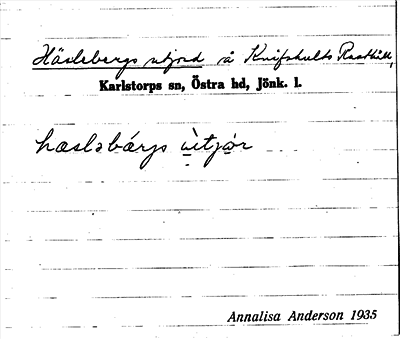 Häslebergs utjord å Knifshults
Karlstorps sn, Östra hd, Jönk. l.
hæsləbárjs ùtjòr
Annalisa Anderson 1935